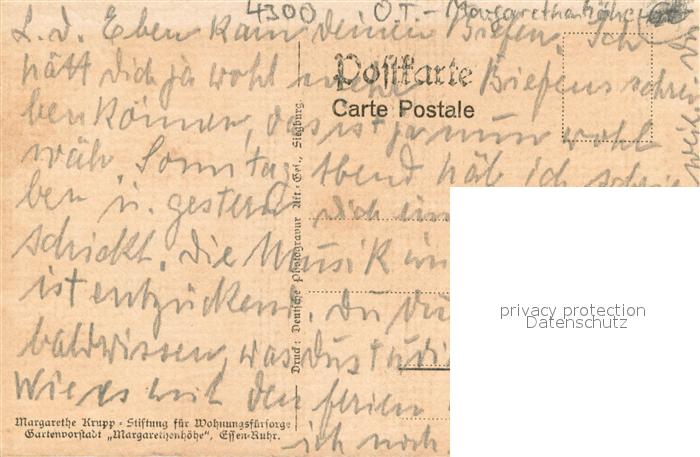 4300 O.T. - Margarethenhöhe
L. d. Eben kam deinen Briefen. Ich
hätt dich ja wohl mehr Briefens schrei
ben können, das ist ja nun wohl
wäh. Sonntag Abend hab ich schrie
ben u. gestern dich
schickt. die Musik
ist entzückend. du
bald wissen, was du studi
Wie es mit den ferien
ich noch
Postkarte
Carte Postale
Druck: Deutsche Photogravur Akt.-Ges., Siegburg.
Margarethe Krupp - Stiftung für Wohnungsfürsorge
Gartenvorstadt „Margarethenhöhe", Essen-Ruhr.
privacy protection
Datenschutz